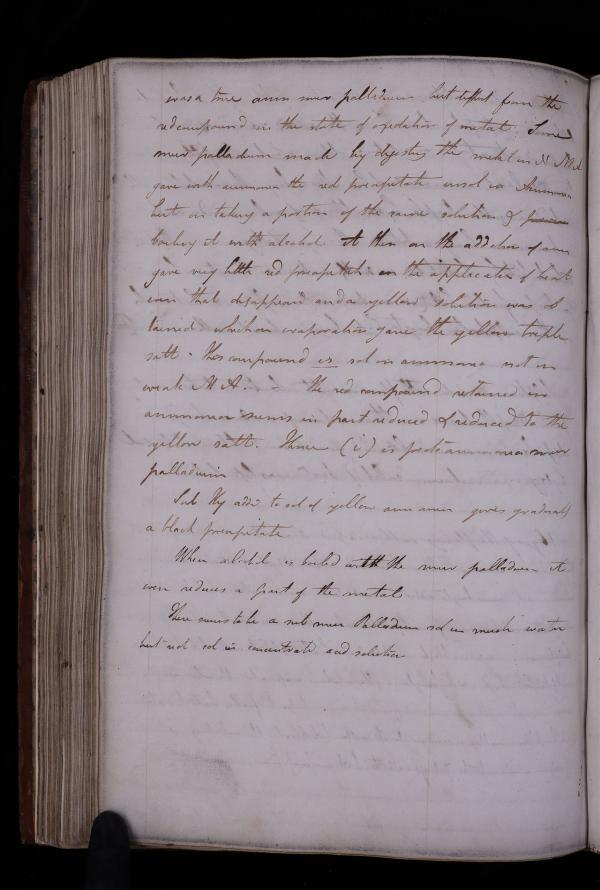 was a true amm mur palladium but differt from the
red compound in the state of oxidation of metal. Some
mur palladium made by digesting the metal in N M A
gave with ammonia the red precipitate insol in Ammonia
but on taking a portion of the same solution &
boiling it with alcohol it then on the addition of amm
gave very little red precipitate on the application of heat
even that disappeard and a yellow solution was ob
tained which on evaporation gave the yellow triple
salt - This compound is sol in ammonia not in
weak M A. - The red compound retained in
ammonia seems in part reduced & reduced to the
yellow salt. Hence (i) is ammonia mur
palladium
Sul Hy add to sol of yellow amm gives gradually
a black precipitate
When alcohol is boiled with the mur palladium it
even reduces a part of the metal
There seems to be a sub mur Palladium sol in much water
but not sol in concentrate acid solution